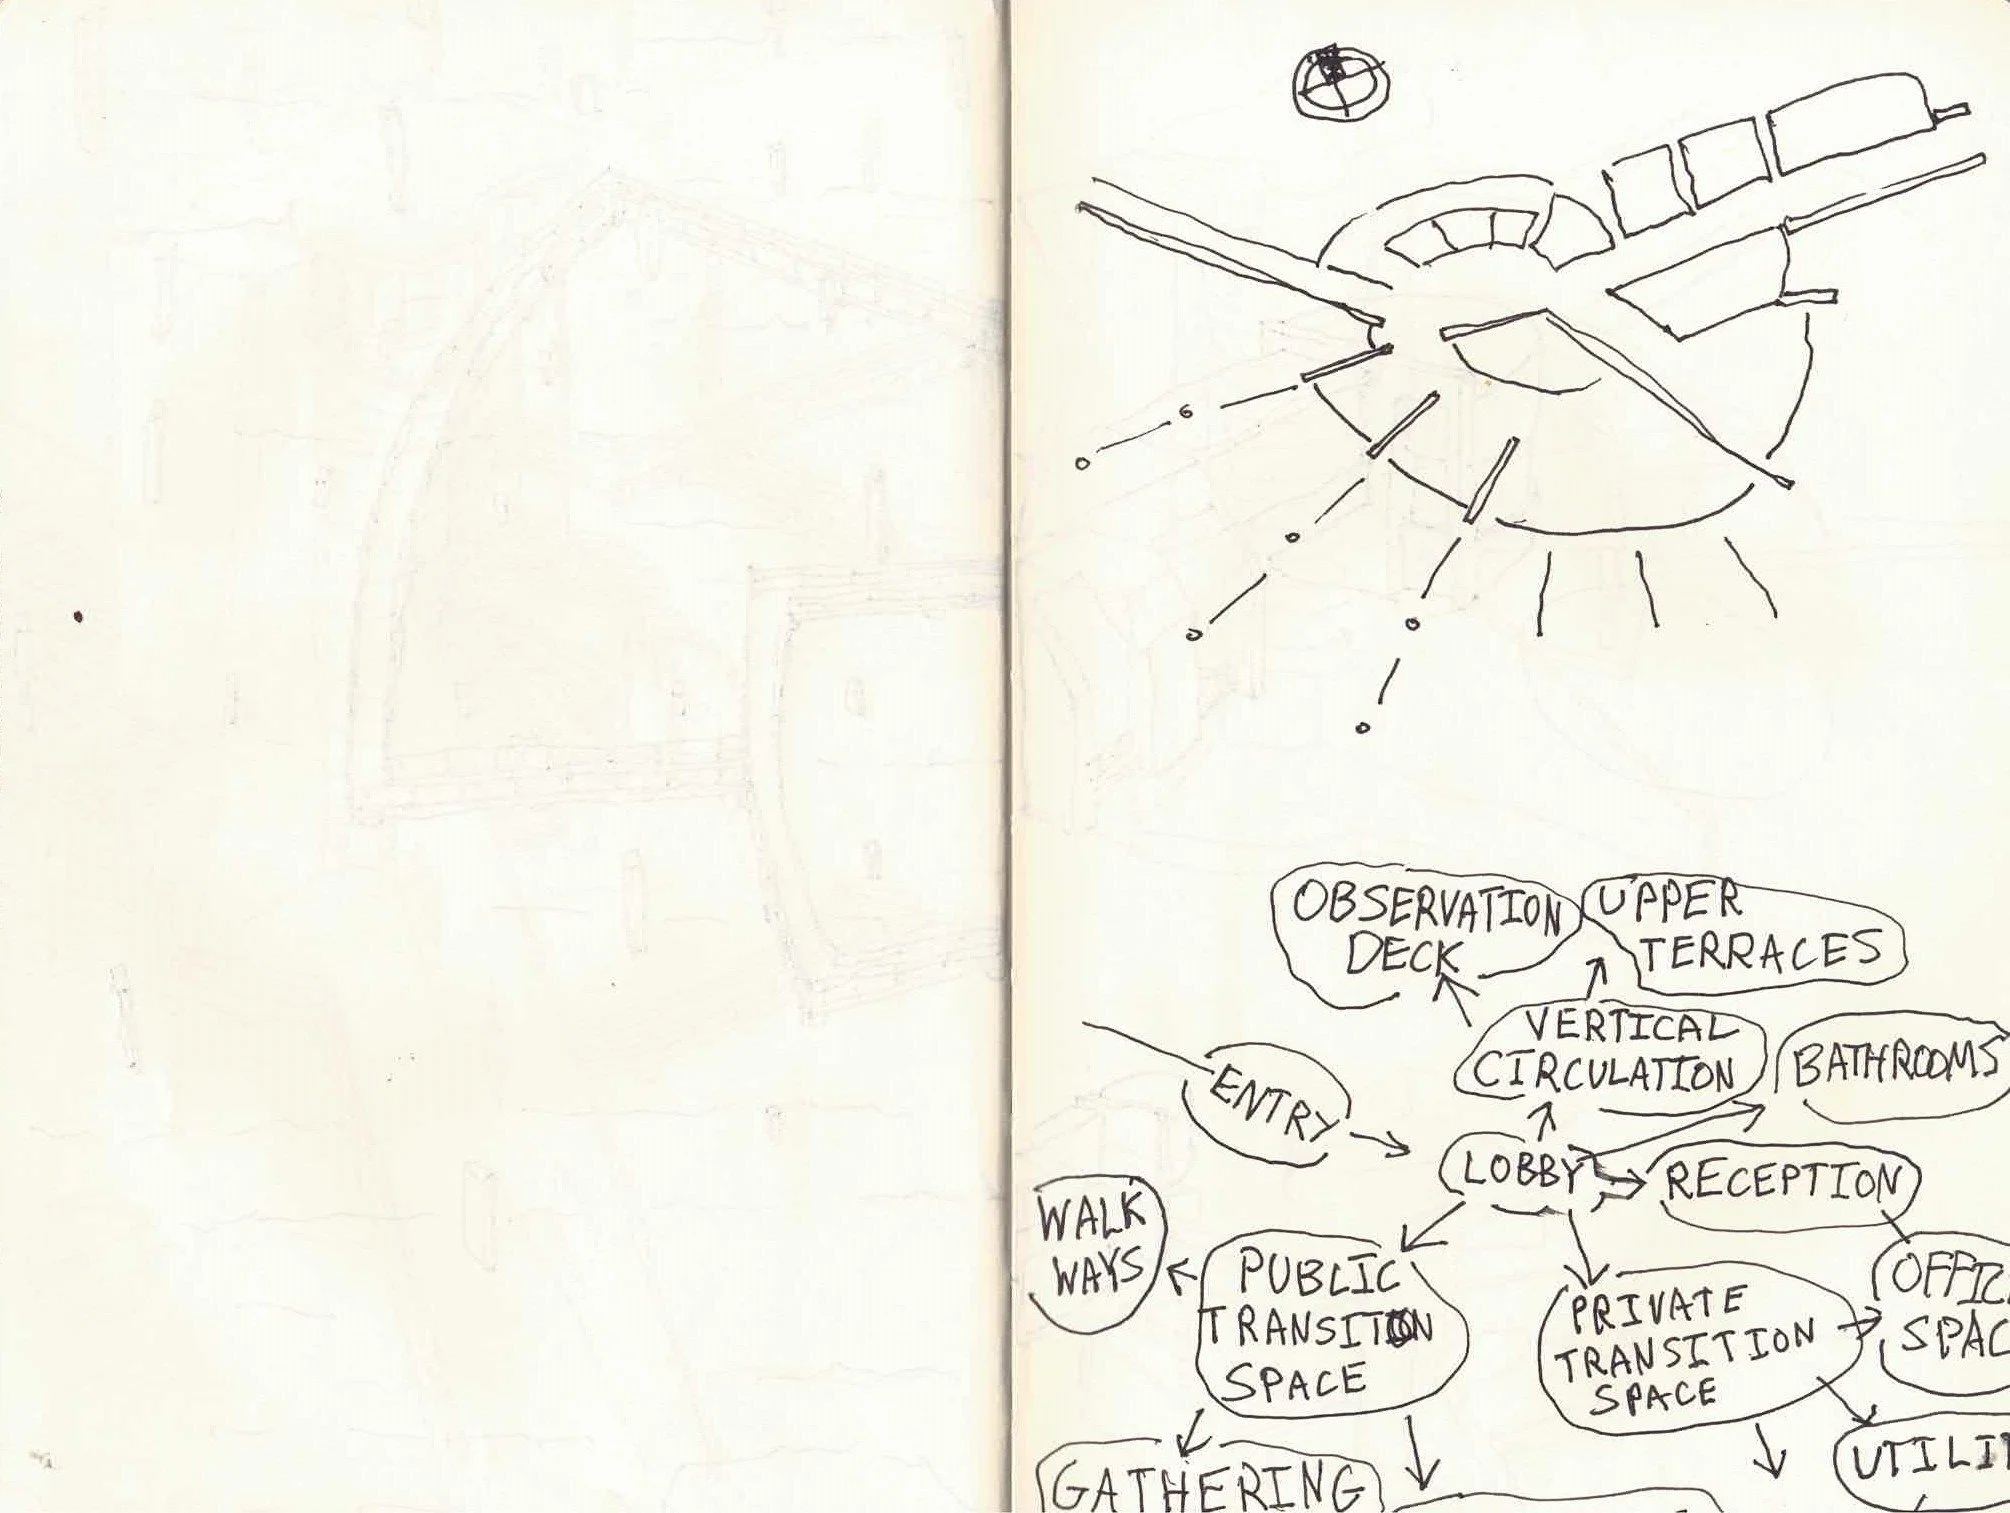 OBSERVATION
DECK
UPPER
TERRACES
VERTICAL
CIRCULATION
BATHROOMS
ENTRY
LOBBY
RECEPTION
WALK
WAYS
PUBLIC
TRANSITON
SPACE
PRIVATE
TRANSITION
SPACE
OFFIC
SPAC
GATHERING
UTILI